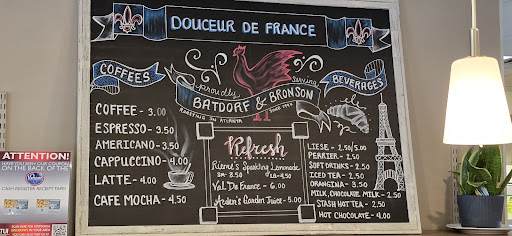 DOUCEUR DE FRANCE
COFFEES
proudly
serving
BATDORF & BRONSON
ROASTED IN ATLANTA
SINCE 1986
BEVERAGES
COFFEE - 3.00
ESPRESSO - 3.50
AMERICANO - 3.50
CAPPUCCINO - 4.00
LATTE - 4.00
CAFE MOCHA - 4.50
Refresh
Sparkling Lemonade
SM - 3.50
LG - 4.50
Val De France - 6.00
Garden Juice - 5.00
LIESE - 2.50/5.00
PERRIER - 2.50
SOFT DRINKS - 2.50
ICED TEA - 2.50
ORANGINA - 3.50
MILK, CHOCOLATE MILK - 2.50
STASH HOT TEA - 2.50
HOT CHOCOLATE - 4.00
ATTENTION!
HAVE YOU SEEN OUR COUPON
ON THE BACK OF THE
CASH REGISTER RECEIPT TAPE!